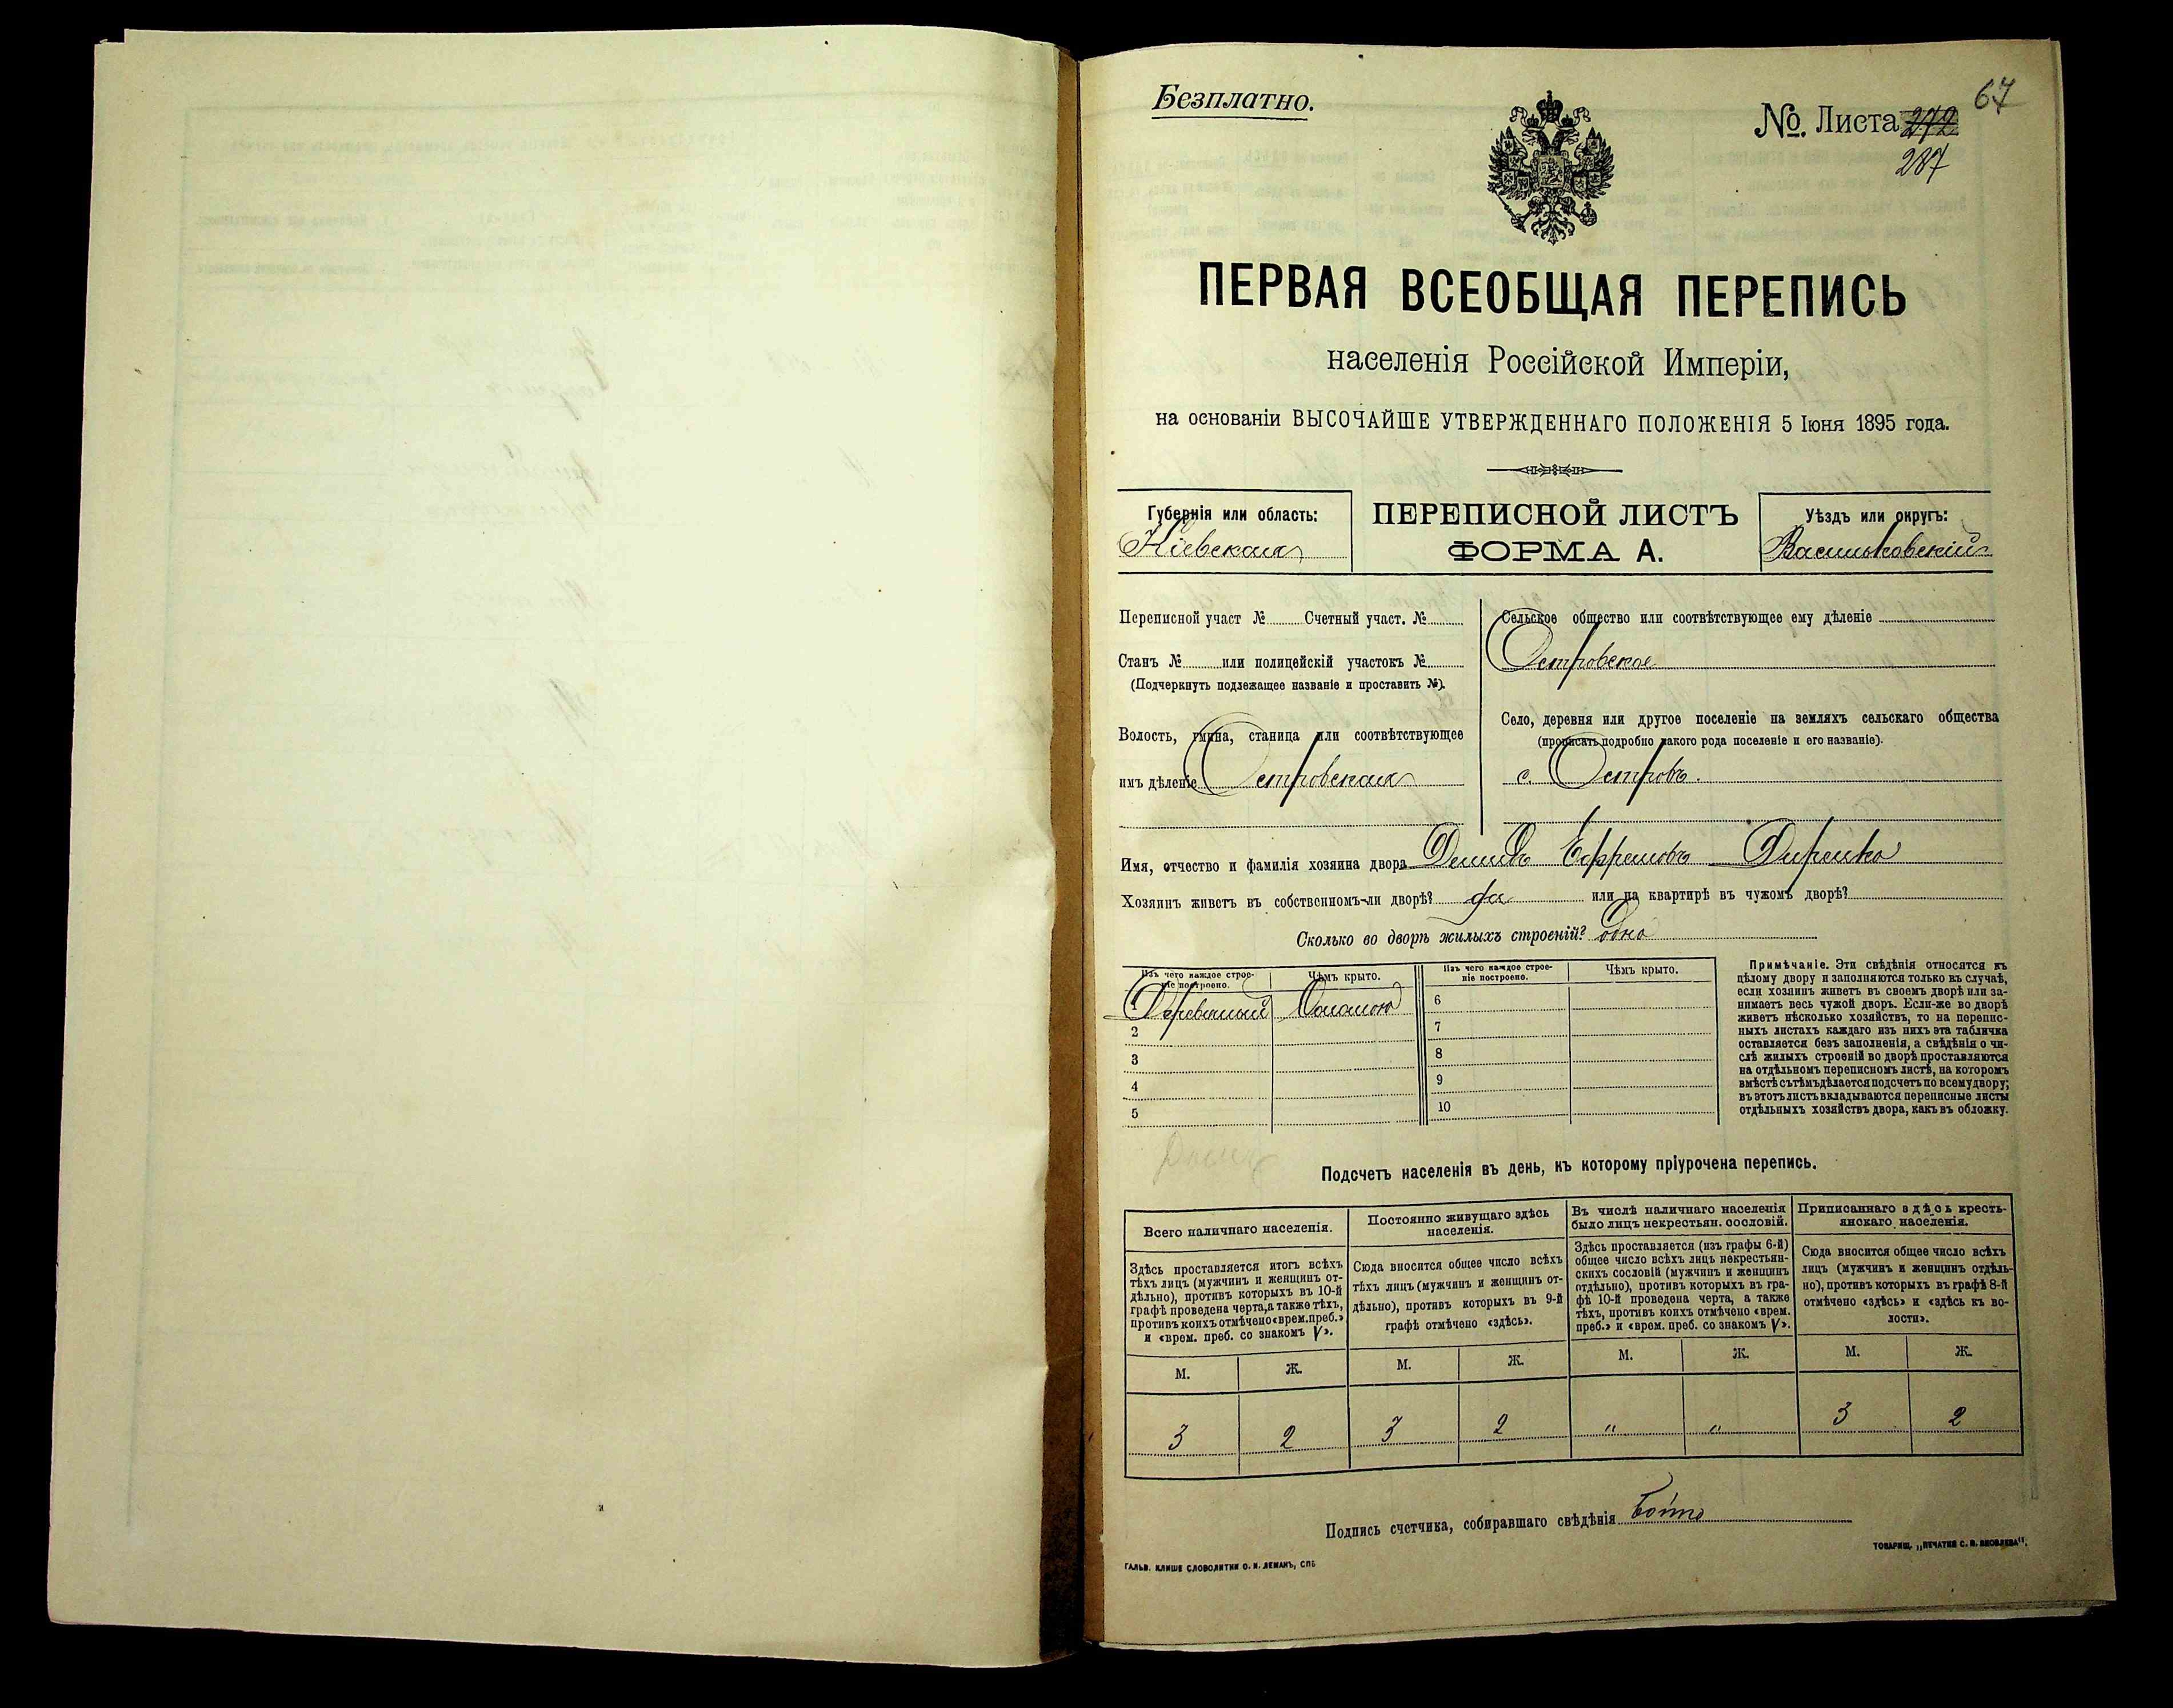 Безплатно.
67
№. Листа 272
287
ПЕРВАЯ ВСЕОБЩАЯ ПЕРЕПИСЬ
населенія Россійской Имперіи,
на основаніи ВЫСОЧАЙШЕ УТВЕРЖДЕННАГО ПОЛОЖЕНІЯ 5 Іюня 1895 года.
Губернія или область:
Кіевская
ПЕРЕПИСНОЙ ЛИСТЪ
ФОРМА А.
Уѣздъ или округъ:
Васильковскій
Переписной участ № Счетный участ. №
Станъ № или полицейскій участокъ №
(Подчеркнуть подлежащее названіе и проставить №).
Волость, гмина, станица или соотвѣтствующее
имъ дѣленіе Островская
Сельское общество или соотвѣтствующее ему дѣленіе
Островское
Село, деревня или другое поселеніе на земляхъ сельскаго общества
(прописать подробно какого рода поселеніе и его названіе).
с. Островъ.
Имя, отчество и фамилія хозяина двора Ефремовъ
Хозяинъ живетъ въ собственномъ-ли дворѣ? да или на квартирѣ въ чужомъ дворѣ?
Сколько во дворѣ жилыхъ строеній? одно
Изъ чего каждое строе-
ніе построено.
Чѣмъ крыто.
Изъ чего каждое строе-
ніе построено.
Чѣмъ крыто.
1 Соломою 6
2 7
3 8
4 9
5 10
Примѣчаніе. Эти свѣдѣнія относятся къ
цѣлому двору и заполняются только въ случаѣ,
если хозяинъ живетъ въ своемъ дворѣ или за-
нимаетъ весь чужой дворъ. Если-же во дворѣ
живетъ нѣсколько хозяйствъ, то на перепис-
ныхъ листахъ каждаго изъ нихъ эта табличка
оставляется безъ заполненія, а свѣдѣнія о чи-
слѣ жилыхъ строеній во дворѣ проставляются
на отдѣльномъ переписномъ листѣ, на которомъ
вмѣстѣ съ тѣмъ дѣлается подсчетъ по всему двору;
въ этотъ листъ вкладываются переписные листы
отдѣльныхъ хозяйствъ двора, какъ въ обложку.
Подсчетъ населенія въ день, къ которому пріурочена перепись.
Всего наличнаго населенія.
Здѣсь проставляется итогъ всѣхъ
тѣхъ лицъ (мужчинъ и женщинъ от-
дѣльно), противъ которыхъ въ 10-й
графѣ проведена черта, а также тѣхъ,
противъ коихъ отмѣчено «врем. преб.»
и «врем. преб. со знакомъ V».
Постоянно живущаго здѣсь
населенія.
Сюда вносится общее число всѣхъ
тѣхъ лицъ (мужчинъ и женщинъ от-
дѣльно), противъ которыхъ въ 9-й
графѣ отмѣчено «здѣсь».
Въ числѣ наличнаго населенія
было лицъ некрестьян. сословій.
Здѣсь проставляется (изъ графы 6-й)
общее число всѣхъ лицъ некрестьян-
скихъ сословій (мужчинъ и женщинъ
отдѣльно), противъ которыхъ въ гра-
фѣ 10-й проведена черта, а также
тѣхъ, противъ коихъ отмѣчено «врем.
преб.» и «врем. преб. со знакомъ V».
Приписаннаго здѣсь кресть-
янскаго населенія.
Сюда вносится общее число всѣхъ
лицъ (мужчинъ и женщинъ отдѣль-
но), противъ которыхъ въ графѣ 8-й
отмѣчено «здѣсь» и «здѣсь къ во-
лости».
М. Ж. М. Ж. М. Ж. М. Ж.
3 2 3 2 " " 3 2
Подпись счетчика, собиравшаго свѣдѣнія
ГАЛЬВ. КЛИШЕ СЛОВОЛИТНИ О. И. ЛЕМАНЪ, СПБ
ТОВАРИЩ. „ПЕЧАТНЯ С. П. ЯКОВЛЕВА".